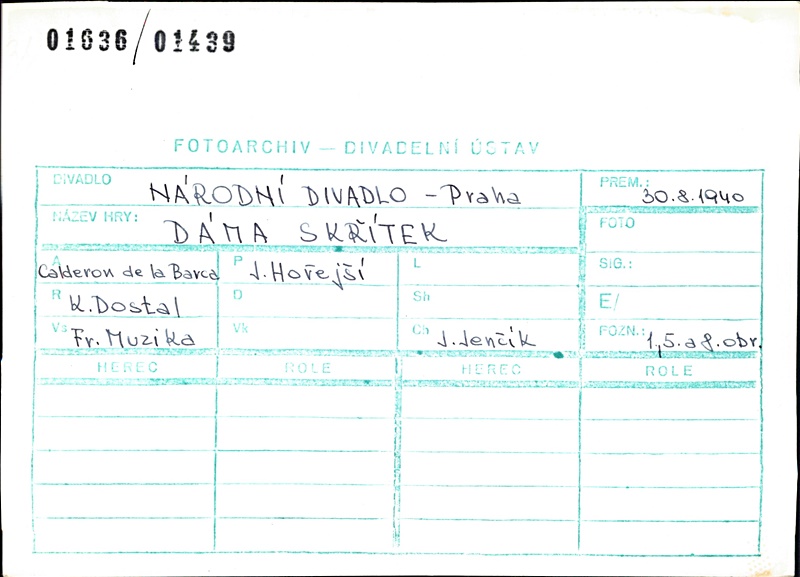 01636/01439
FOTOARCHIV — DIVADELNÍ ÚSTAV
DIVADLO NÁRODNÍ DIVADLO - Praha PREM.: 30.8.1940
NÁZEV HRY: DÁMA SKŘÍTEK FOTO
A Calderon de la Barca P J. Hořejší L SIG.:
R K. Dostal D Sh E/
Vs Fr. Muzika Vk Ch J. Jenčík POZN.: 1, 5. a 8. obr.
HEREC ROLE HEREC ROLE